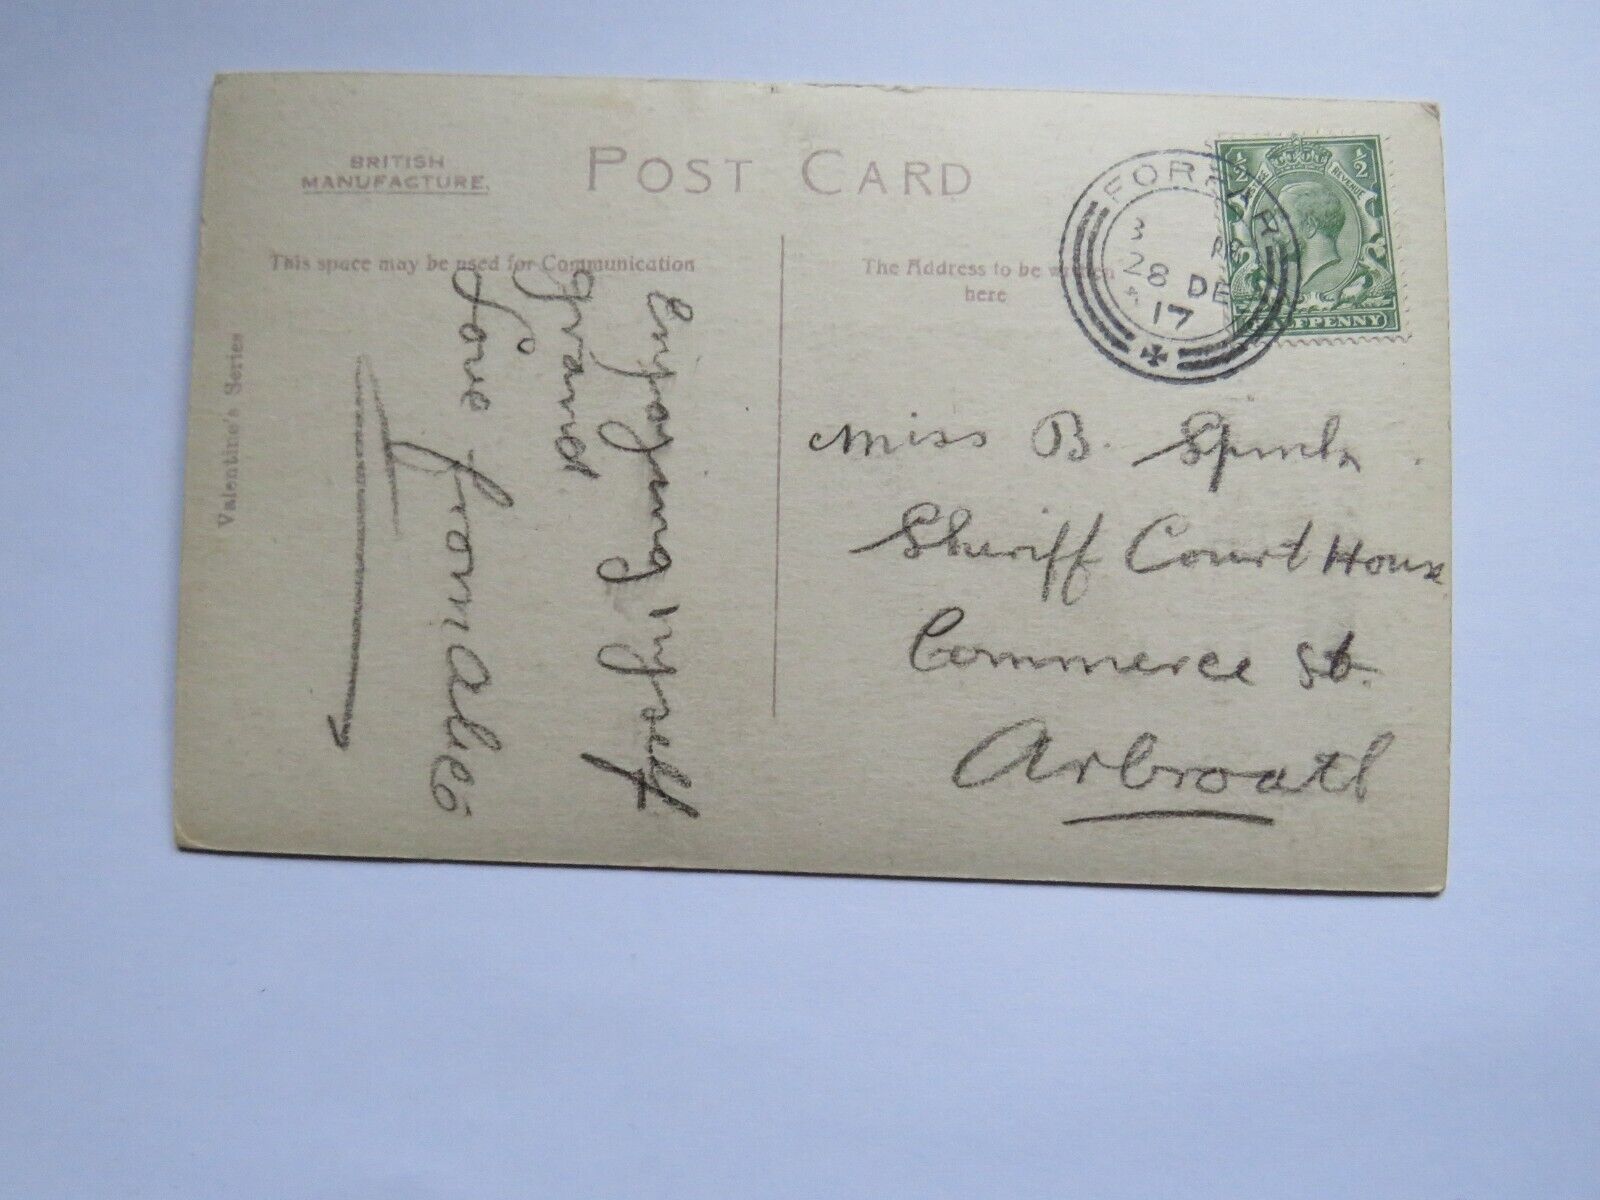 BRITISH
MANUFACTURE.
POST CARD
This space may be used for Communication
The Address to be written
here
Valentine's Series
enjoying myself
grand
Love from Alec
FORFAR
3
28 DE
17
½ ½
REVENUE
HALFPENNY
Miss B.
Sheriff Court House
Commerce St.
Arbroath